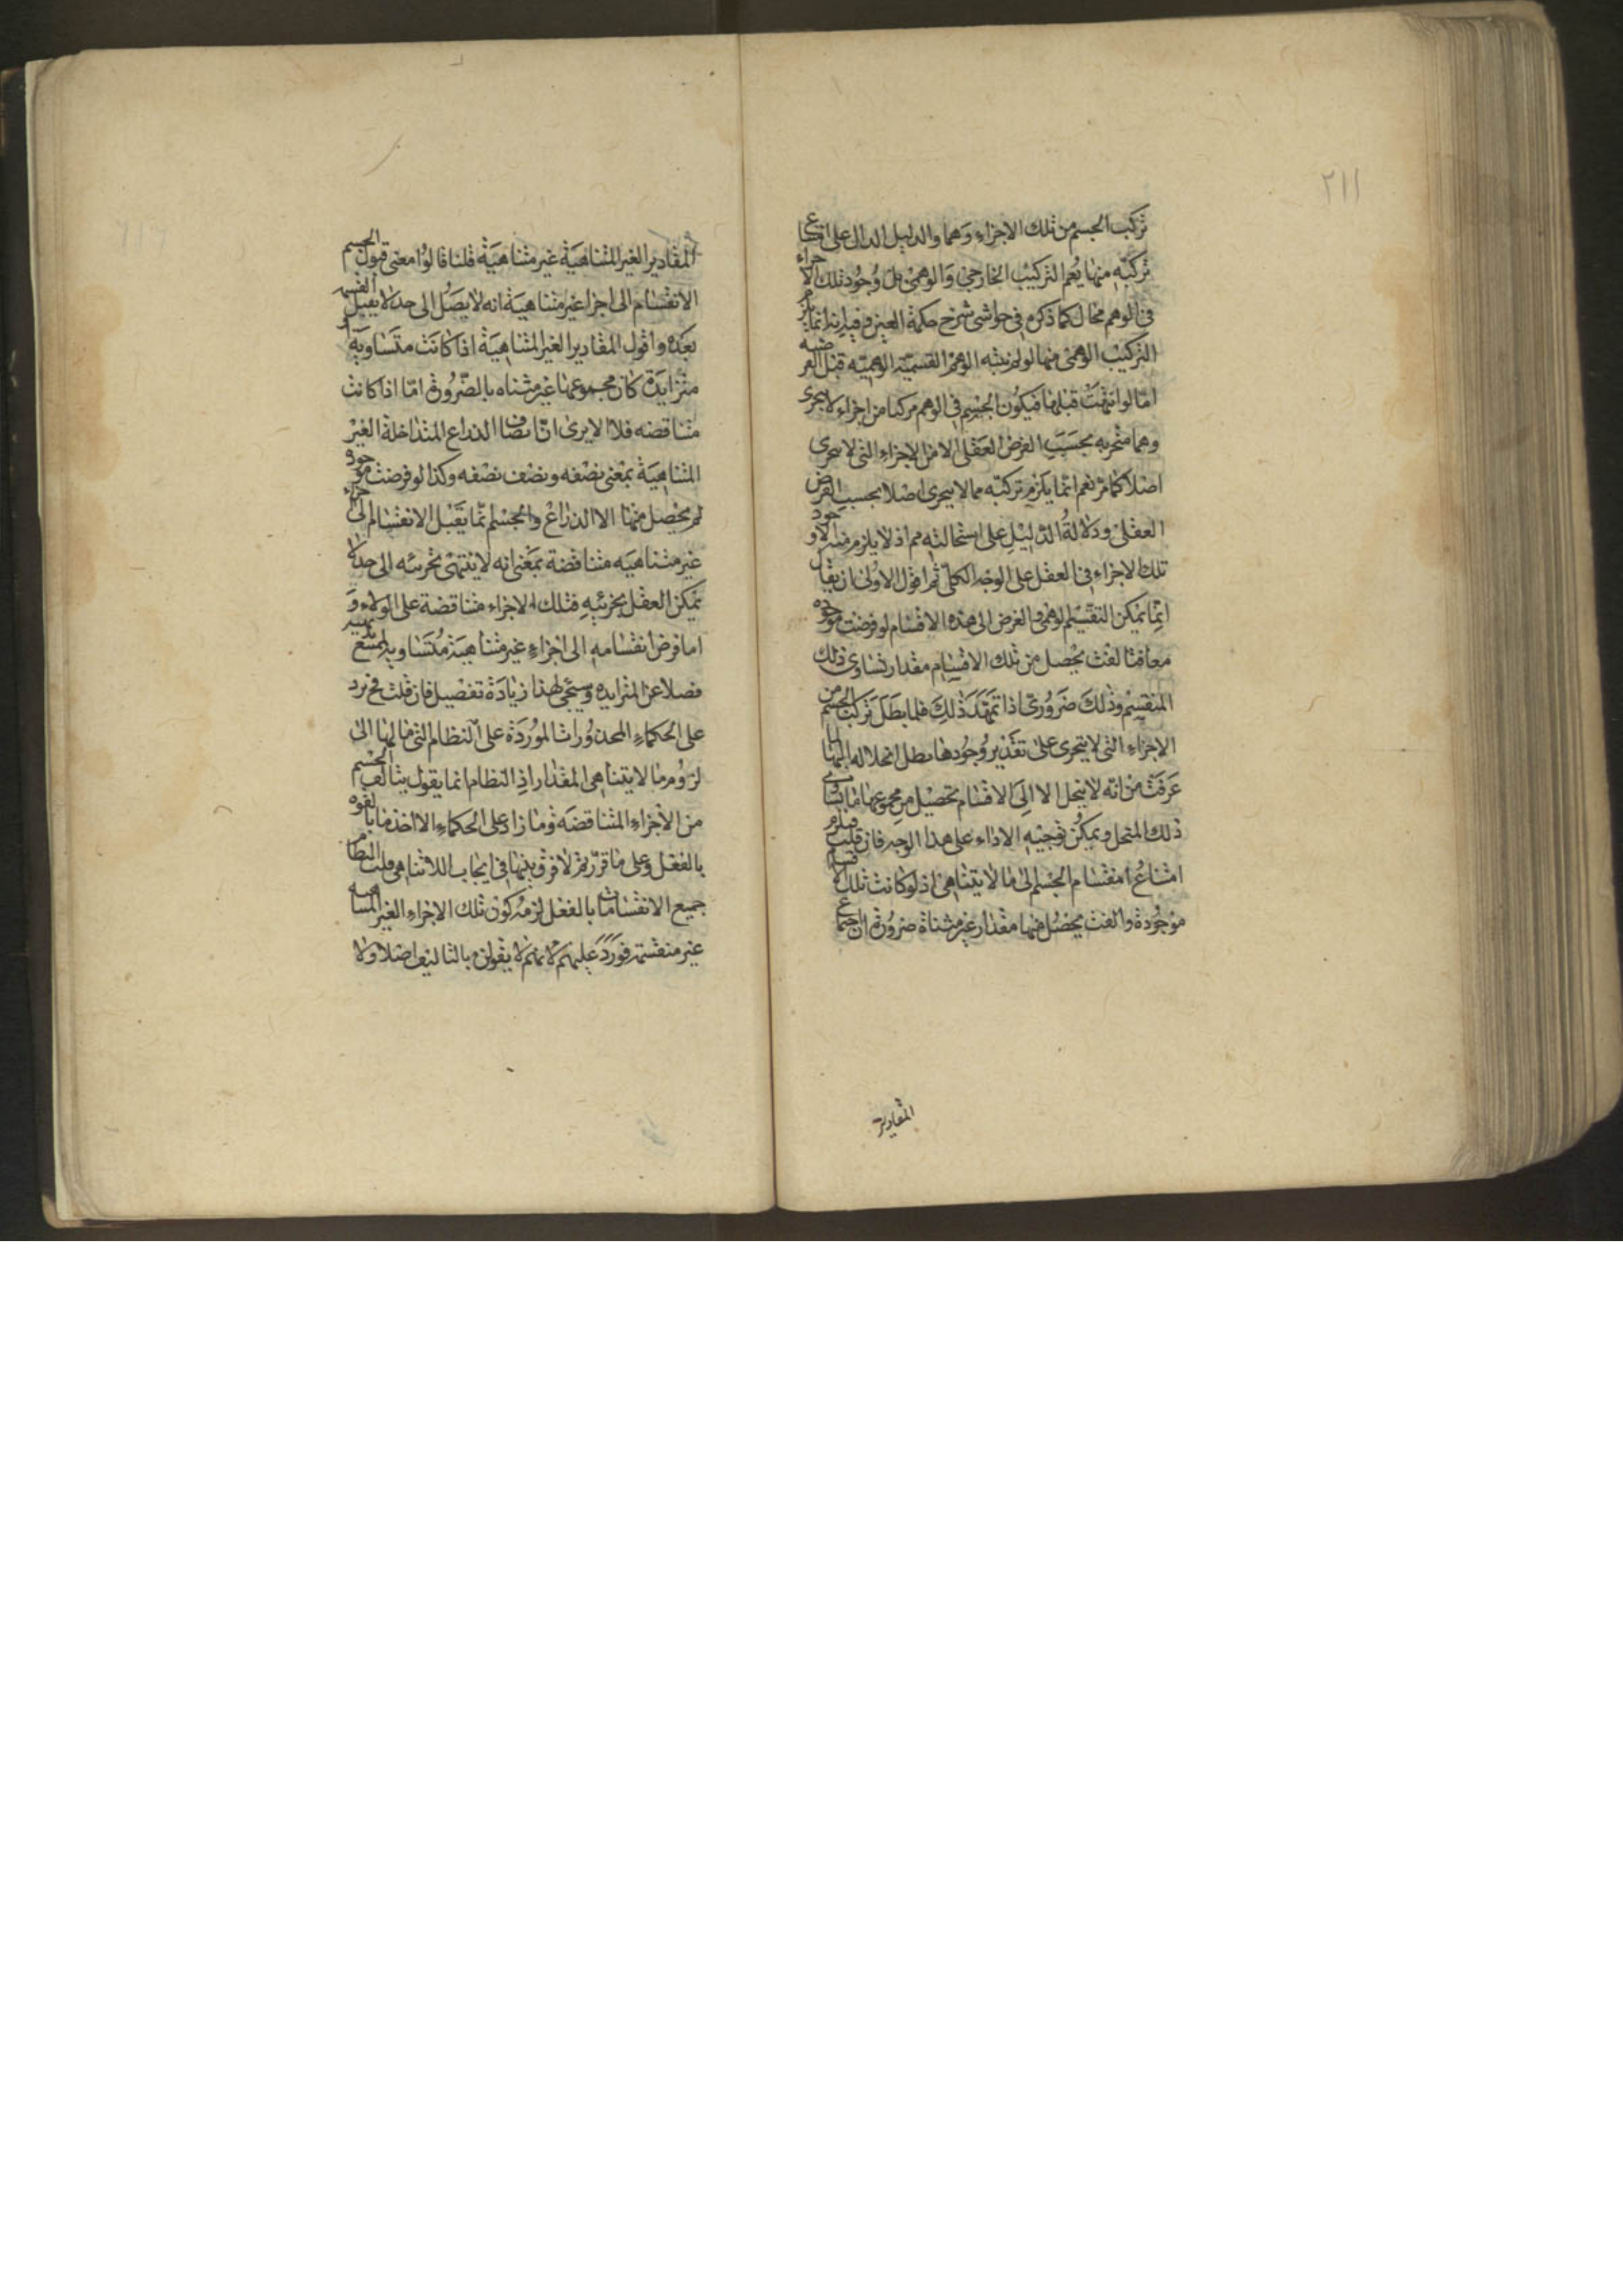 ٢١١
تركب الجسم من تلك الاجزاء وهما والدليل الدال على امتناع
تركبه منها يعم التركيب الخارجي والوهمي بل وجود تلك الاجزاء
في الوهم محال كما ذكره في حواشى شرح حكمة العين وفيه انه انما يلزم
التركيب الوهمى منها لو لم ينته الوهم القسمة الوهمية قبل الفرضيه
اما لو انتهت قبلها فيكون الجسم في الوهم مركبا من اجزاء لا يتجزى
وهما متجزيه بحسب الفرض العقلى لا من الاجزاء التى لا تتجزى
اصلا كما مر نعم انما يلزم تركبه مما لا يتجزى اصلا بحسب الفرض
العقلى ودلالة الدليل على استحالته مم اذ لا يلزم منه الا وجود
تلك الاجزاء في العقل على الوجه الكلى ثم اقول الاولى ان يقال
انما يمكن التقسيم الوهمى والفرضى الى هذه الاقسام لو فرضت موجوده
معا فتالفت يحصل من تلك الاقسام مقدار تساوى ذلك
المنقسم وذلك ضرورى اذا تمهد ذلك فلما بطل تركب الجسم من
الاجزاء التى لا يتجزى على تقدير وجودها بطل انحلاله اليها لما
عرفت من انه لا ينحل الا الى الاقسام تحصل من مجموعها ما يساوى
ذلك المنحل ويمكن توجيه الاداء على هذا الوجه فان قلت فيلزم
امتناع انقسام الجسم الى ما لا يتناهى اذ لو كانت تلك الاقسام
موجودة والفت يحصل منها مقدار غير متناه ضرورة ان اجتماع
المقادير
المقادير الغير المتناهية غير متناهية قلنا قالوا معنى قبول الجسم
الانقسام الى اجزا غير متناهية انه لا يصل الى حد لا يقبل القسمه
بعده واقول المقادير الغير المتناهية اذا كانت متساوية او
متزايدة كان مجموعها غير متناه بالضرورة اما اذا كانت
متناقضه فلا الا يرى ان انصاف الذراع المتداخلة الغير
المتناهية بمعنى نصفه ونصف نصفه وكذا لو فرضت موجوده
لم يحصل منها الا الذراع والجسم انما يقبل الانقسام الى اجزاء
غير متناهيه متناقضة بمعنى انه لا ينتهى تجزئه الى حد لا
يمكن العقل بجزئيه فتلك الاجزاء متناقضة على الولاء و
اما فرض انقسامه الى اجزاء غير متناهية متساويه فممتنع
فضلا عن المتزايده وسيجى لهذا زيادة تفصيل فان قلت فح يرد
على الحكماء المحذورات الموردة على النظام التى مالها الى
لزوم ما لا يتناهى المقدار اذ النظام انما يقول بتالف الجسم
من الاجزاء المتناقضة وما زاد على الحكماء الا اخذ ما بالقوه
بالفعل وعلى ما قررتم لا فرق بينهما في ايجاب اللاتناهى قلت النظام
جميع الانقسامات بالفعل لزمه كون تلك الاجزاء الغير المتناهيه
غير منقسمة فورد عليهم لانهم لا يقولون بالتاليف اصلا ولا